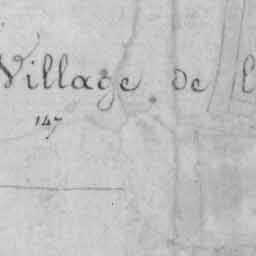 Village de l
147